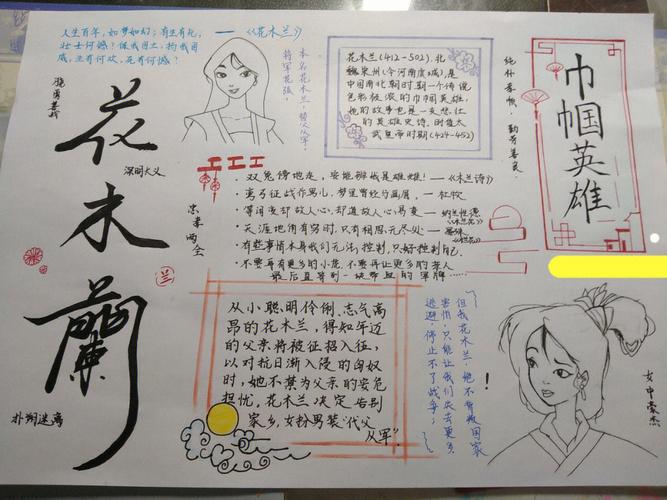 人生百年,如梦如幻;有生有死,
壮士何憾?保我国土,扬我国
威,生有何欢,死有何憾?
——《花木兰》
骁勇善战
花
木
蘭
深明大义
扑朔迷离
忠孝两全
兰
本名花木兰,替父从军,
将军花弧,
花木兰(412-502),北
魏宋州(今河南虞城),是
中国南北朝时期一个传说
色彩极浓的巾帼英雄,
她的故事也是一支悲壮
的英雄史诗,时值太
武皇帝时期(424-452)
纯朴孝敬,勤劳善良
巾帼英雄
·双兔傍地走,安能辨我是雄雌!——《木兰诗》
·弯弓征战作男儿,梦里曾经与画眉,——杜牧
·等闲变却故人心,却道故人心易变——纳兰性德《木兰花》
·天涯地角有穷时,只有相思无尽处——晏殊《木兰花》
·有些事情本身我们无法控制,只好控制自己.
·不要再有更多的小虎,不要再让更多的亲人
最后直等到一块带血的军牌……
从小聪明伶俐,志气高
昂的花木兰,得知年迈
的父亲将被征招入征,
以对抗日渐入侵的匈奴
时,她不禁为父亲的安危
担忧,花木兰决定告别
家乡,女扮男装“代父
从军”.
但我花木兰,绝不背叛国家
害怕,只能让我们失去更多
逃避,停止不了战争;
!
女中豪杰